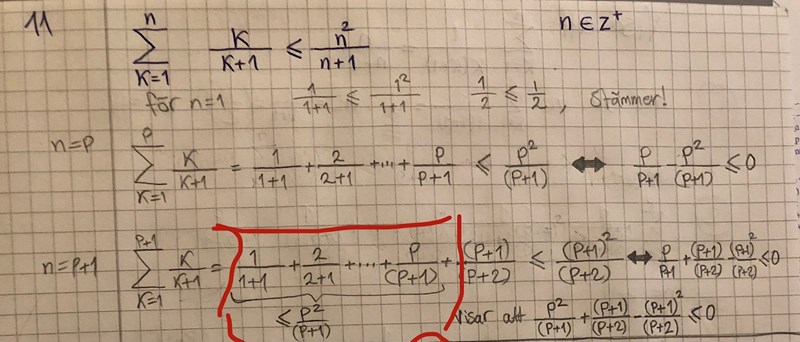 11 $\sum_{K=1}^{n} \frac{K}{K+1} \leq \frac{n^2}{n+1}$ $n \in z^+$
för n=1 $\frac{1}{1+1} \leq \frac{1^2}{1+1}$ $\frac{1}{2} \leq \frac{1}{2}$, Stämmer!
n=p $\sum_{K=1}^{p} \frac{K}{K+1} = \frac{1}{1+1} + \frac{2}{2+1} + \cdots + \frac{p}{p+1} \leq \frac{p^2}{(p+1)} \leftrightarrow \frac{p}{p+1} - \frac{p^2}{(p+1)} \leq 0$
n=p+1 $\sum_{K=1}^{p+1} \frac{K}{K+1} = \frac{1}{1+1} + \frac{2}{2+1} + \cdots + \frac{p}{(p+1)} + \frac{(p+1)}{(p+2)} \leq \frac{(p+1)^2}{(p+2)} \leftrightarrow \frac{p}{p+1} + \frac{(p+1)}{(p+2)} - \frac{(p+1)^2}{(p+2)} \leq 0$
$\leq \frac{p^2}{(p+1)}$ Visar att $\frac{p^2}{(p+1)} + \frac{(p+1)}{(p+2)} - \frac{(p+1)^2}{(p+2)} \leq 0$